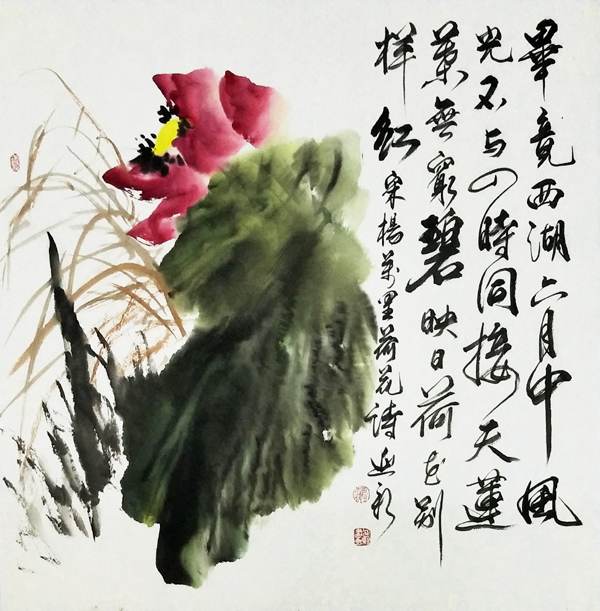 畢竟西湖六月中風
光不与四時同接天蓮
葉無窮碧映日荷花别
样紅 宋楊萬里荷花詩